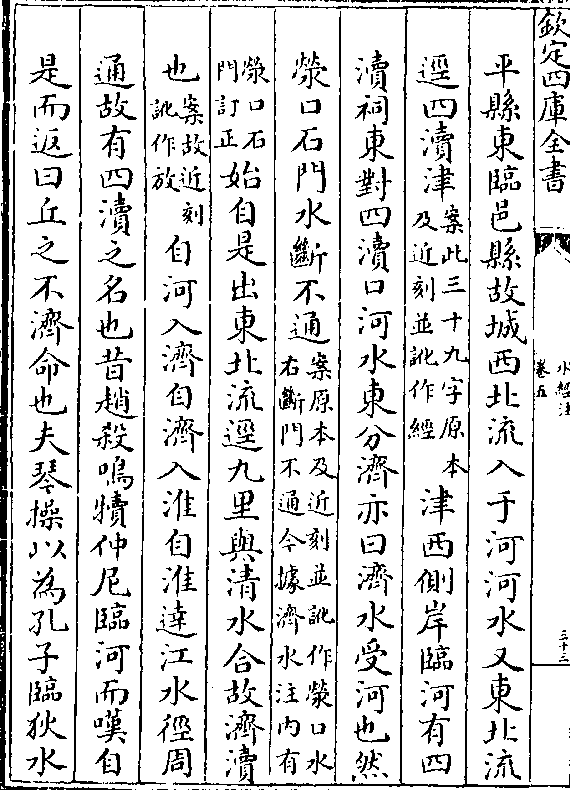 欽定四庫全書
水經注
卷五
三十三
平縣東臨邑縣故城西北流入于河河水又東北流
逕四瀆津案此三十九字原本及近刻並訛作經津西側岸臨河有四
瀆祠東對四瀆口河水東分濟亦曰濟水受河也然
滎口石門水斷不通案原本及近刻並訛作滎口水右斷門不通今據濟水注内有
滎口石門訂正始自是出東北流逕九里與清水合故濟瀆
也案故近刻訛作放自河入濟自濟入淮自淮達江水徑周
通故有四瀆之名也昔趙殺鳴犢仲尼臨河而嘆自
是而返曰丘之不濟命也夫琴操以為孔子臨狄水